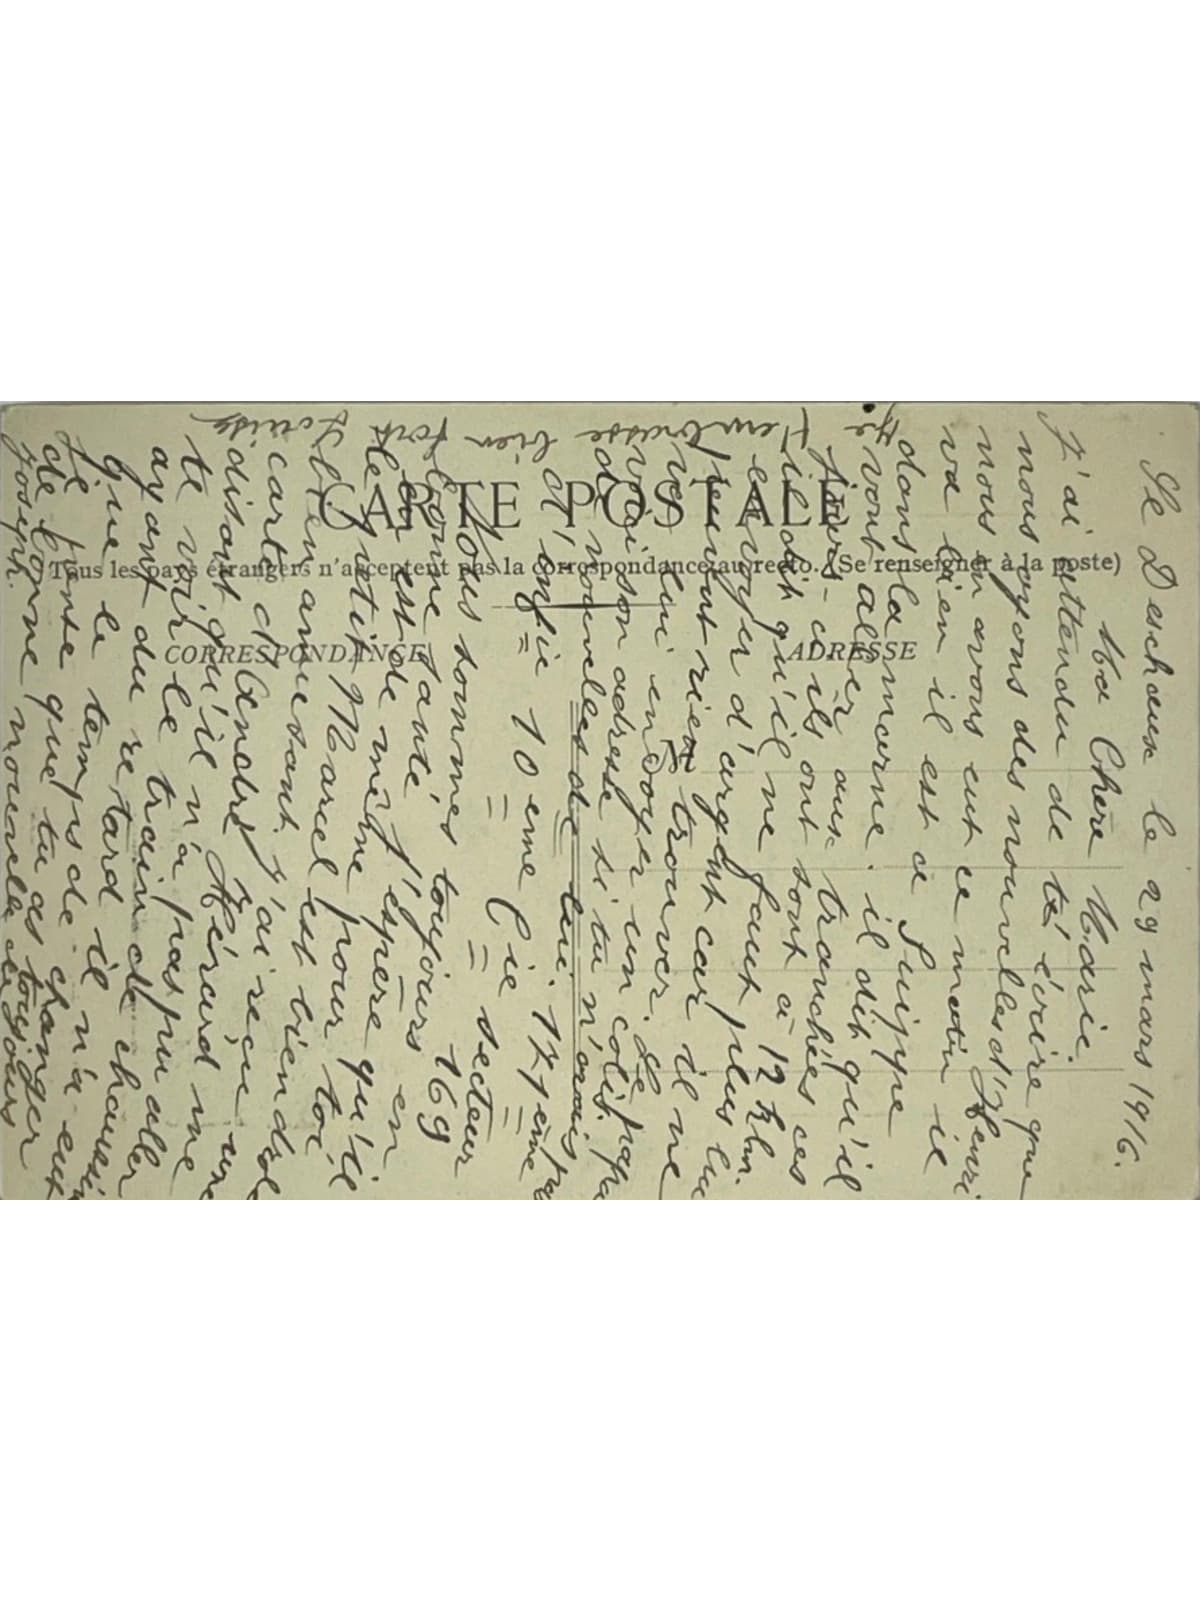 CARTE POSTALE
Tous les pays étrangers n'acceptent pas la correspondance au recto. (Se renseigner à la poste)
CORRESPONDANCE
ADRESSE
Le Deschaux le 29 mars 1916.
Ma Chère Marie.
J'ai attendu de té écrire que
nous ayons des nouvelles d'Henri
nous en avons eut ce matin il
va bien il est a Suippe
dans la marne. il dit qu'il
vont aller aux tranchées ces
jours-ci ils ont sont à 12 klm.
il dit qu'il ne faut plus lui
envoyer d'argent car il ne
peuvent rien trouver. Le papa
va lui envoyer un colis.
voici son adresse si tu n'avais pas
de nouvelles de lui. 171 eme
d'infie 10 eme Cie secteur
169
Nous sommes toujours en
bonne santé j'espère qu'il
en est de même pour toi
le petit Marcel est bien drole
bien amusant. j'ai reçu une
carte d'André Hérard me
disant qu'il n'a pas pu aller
te voir le train de
ayant du retard il n'a eut
que le temps de changer
Je pense que tu as toujours
de bonne nouvelle de
Joseph.
Je t'embrasse bien fort
Louise